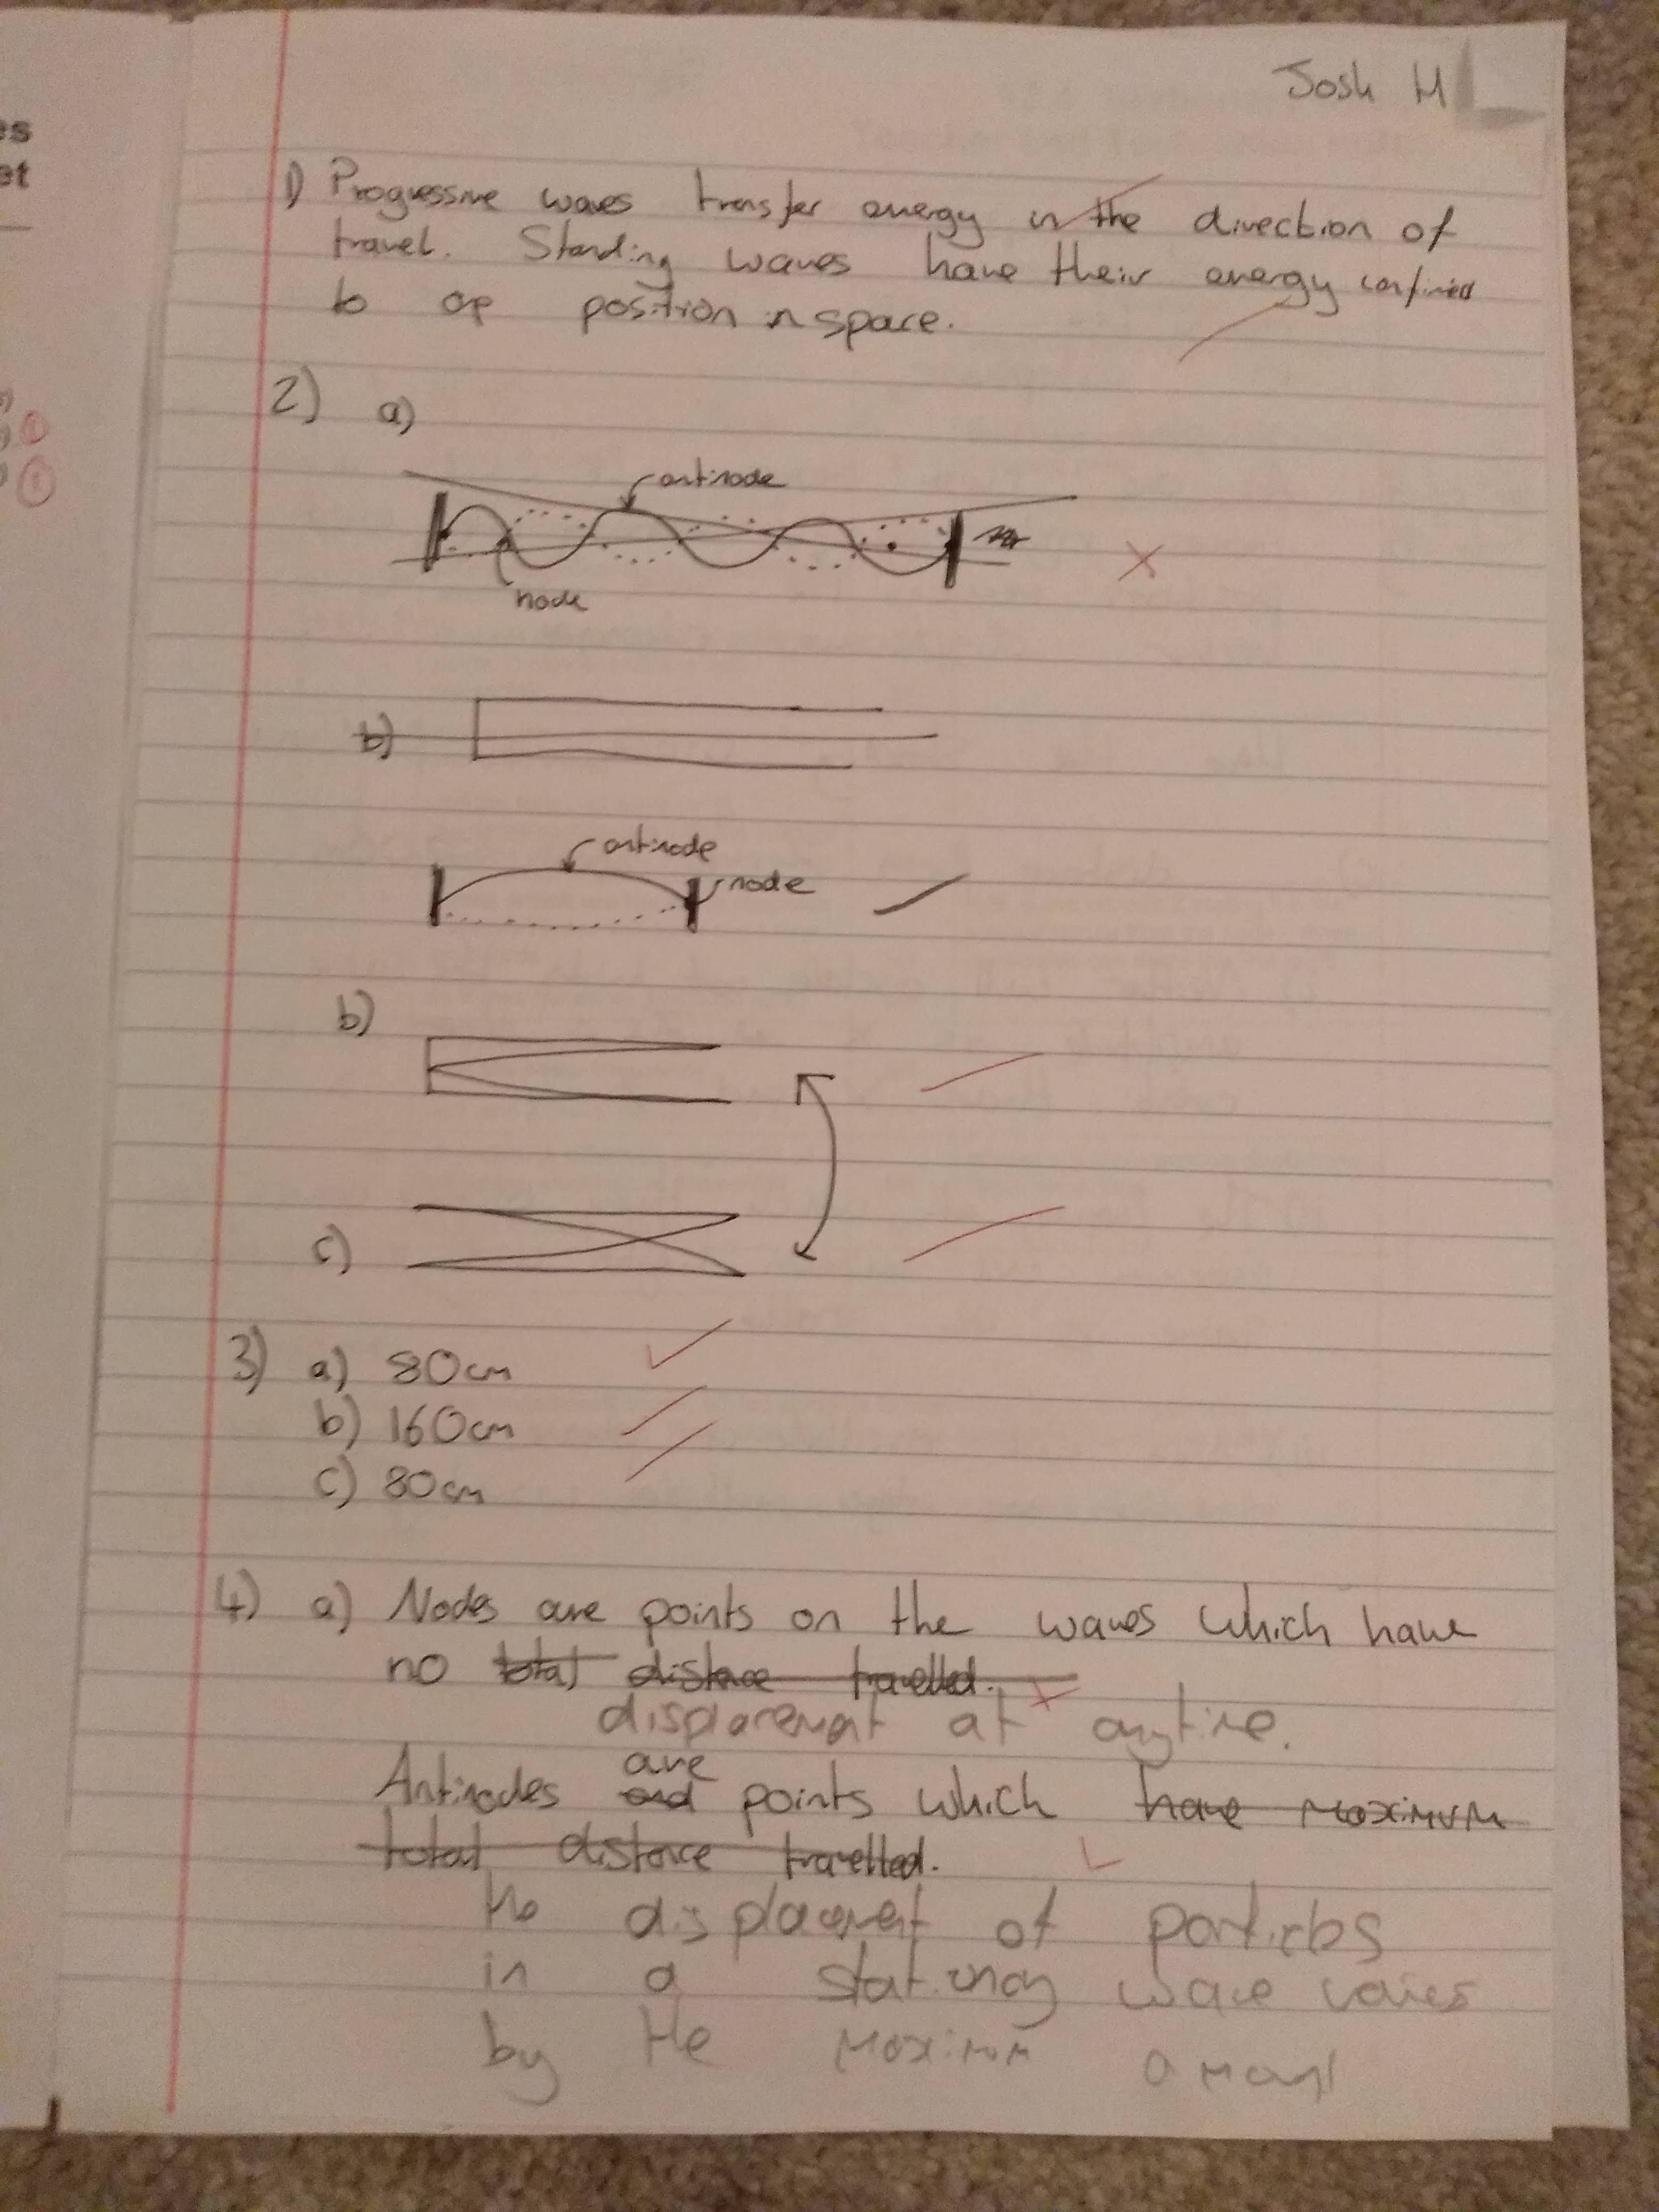 es
et
Josh M
1) Progressive waves transfer energy in the direction of
travel. Standing waves have their energy confined
to position in space.
2) a)
antinode
node
b)
antinode
node
b)
c)
3) a) 80cm
b) 160cm
c) 80cm
4) a) Nodes are points on the waves which have
no total distance travelled.
displacement at anytime.
are
Antinodes and points which have maximum
total distance travelled.
the displacement of particles
in a stationary wave varies
by the maximum amount